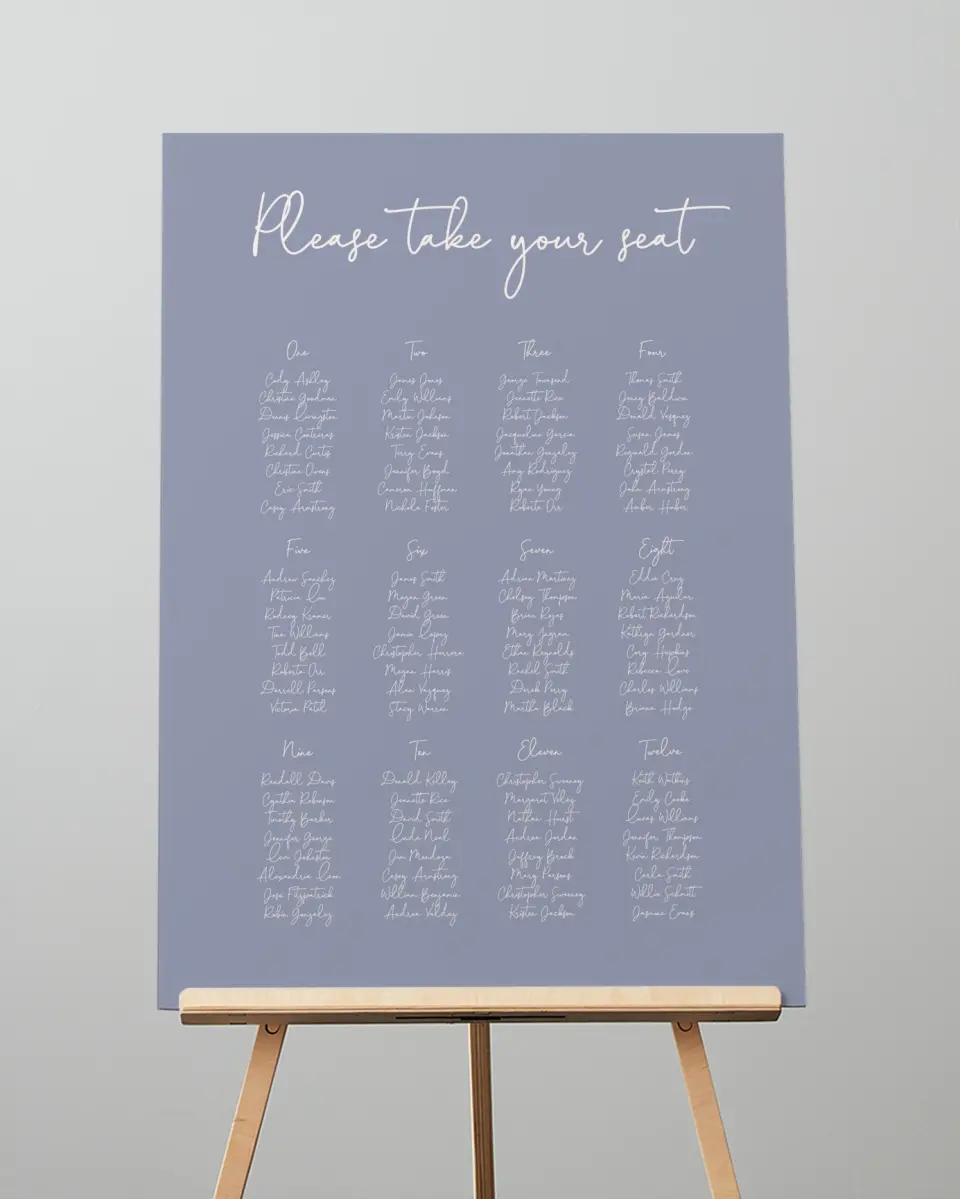 Please take your seat
One
Cody Ashley
Christine Goodman
Dennis Livingston
Jessica Contreras
Richard Curtis
Christine Owens
Eric Smith
Casey Armstrong
Two
James Jones
Emily Williams
Martin Johnson
Kristen Jackson
Terry Evans
Jennifer Boyd
Cameron Huffman
Nichole Foster
Three
George Townsend
Jeanette Rice
Robert Jackson
Jacqueline Garcia
Jonathan Gonzalez
Amy Rodriguez
Ryan Young
Roberto Orr
Four
Thomas Smith
Joney Baldwin
Donald Vasquez
Susan James
Reginald Gordon
Crystal Perry
John Armstrong
Amber Huber
Five
Andrew Sanchez
Patricia Lee
Rodney Kramer
Tina Williams
Todd Bell
Roberto Orr
Darrell Parsons
Victoria Patel
Six
James Smith
Megan Green
David Green
Jamie Lopez
Christopher Herrera
Megan Harris
Alan Vazquez
Stacy Warren
Seven
Adrian Martinez
Chelsey Thompson
Brian Rojas
Mary Ingram
Ethan Reynolds
Rachel Smith
Derek Perry
Martha Black
Eight
Eddie Cruz
Maria Aguilar
Robert Richardson
Kathryn Gardner
Cory Hopkins
Rebecca Love
Charles Williams
Briana Hodge
Nine
Randall Davis
Cynthia Robinson
Timothy Barker
Jennifer George
Johnston
Alexandria Leon
Jose Fitzpatrick
Robin Gonzalez
Ten
Donald Kelley
Jeanette Rice
David Smith
Linda Noel
Jon Mendoza
Casey Armstrong
William Benjamin
Andrea Valdez
Eleven
Christopher Sweeney
Margaret Velez
Nathan Hurst
Andrea Jordan
Jeffrey Brock
Mary Parsons
Christopher Sweeney
Kristen Jackson
Twelve
Keith Watkins
Emily Cooke
Lucas Williams
Jennifer Thompson
Kevin Richardson
Carla Smith
Willie Schmitt
Jasmine Evans